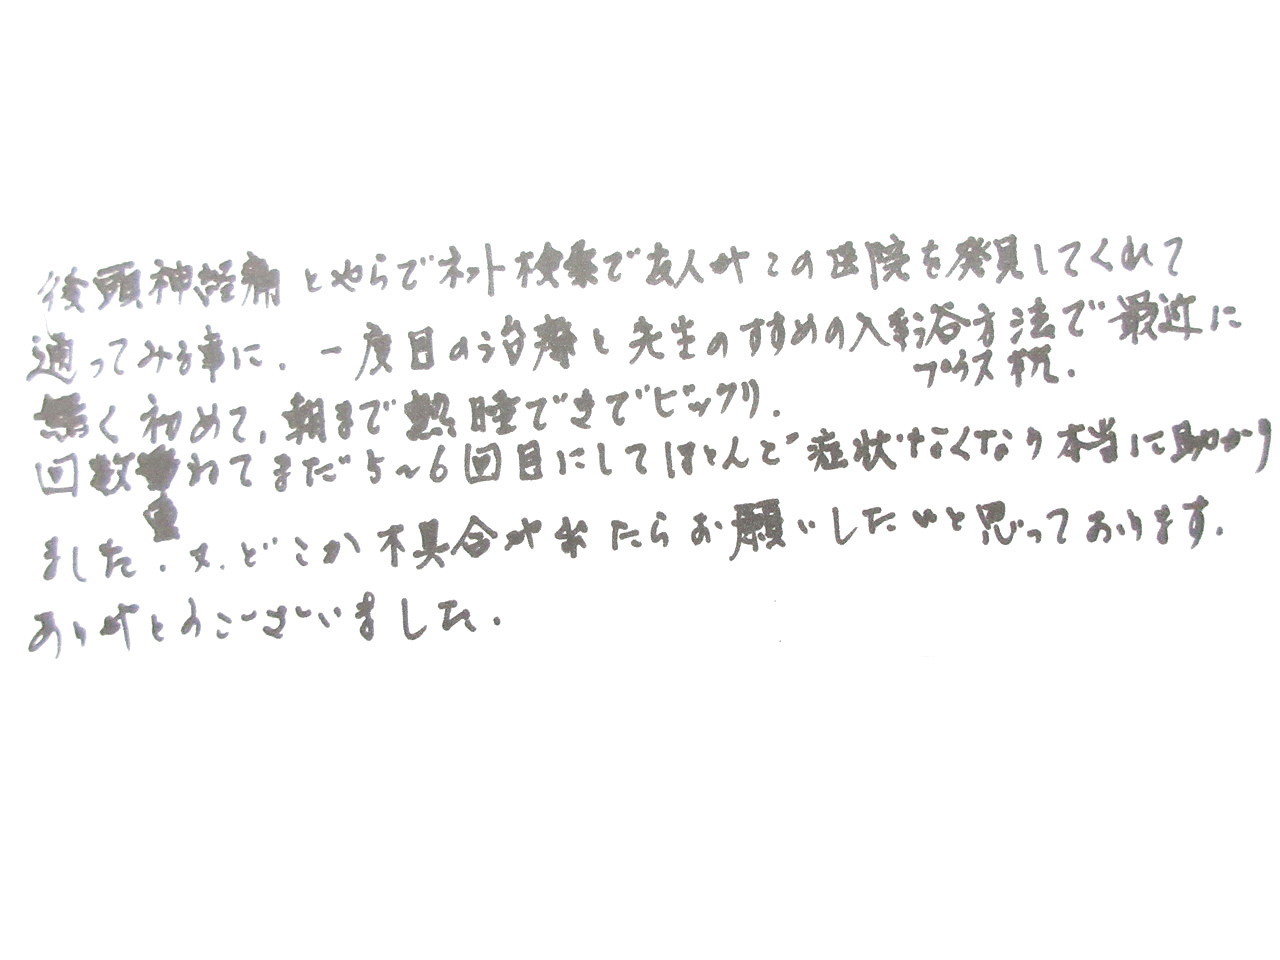 後頭神経痛とやらでネット検索で友人がこの医院を発見してくれて
通ってみる事に.一度目の治療と先生のすすめの入浴方法で最近に
プラス枕.
無く初めて,朝まで熟睡できてビックリ.
回数 ねてまだ5〜6回目にしてほとんど症状なくなり本当に助かり
重
ました.又.どこか不具合が出たらお願いしたいと思っております.
ありがとうございました.